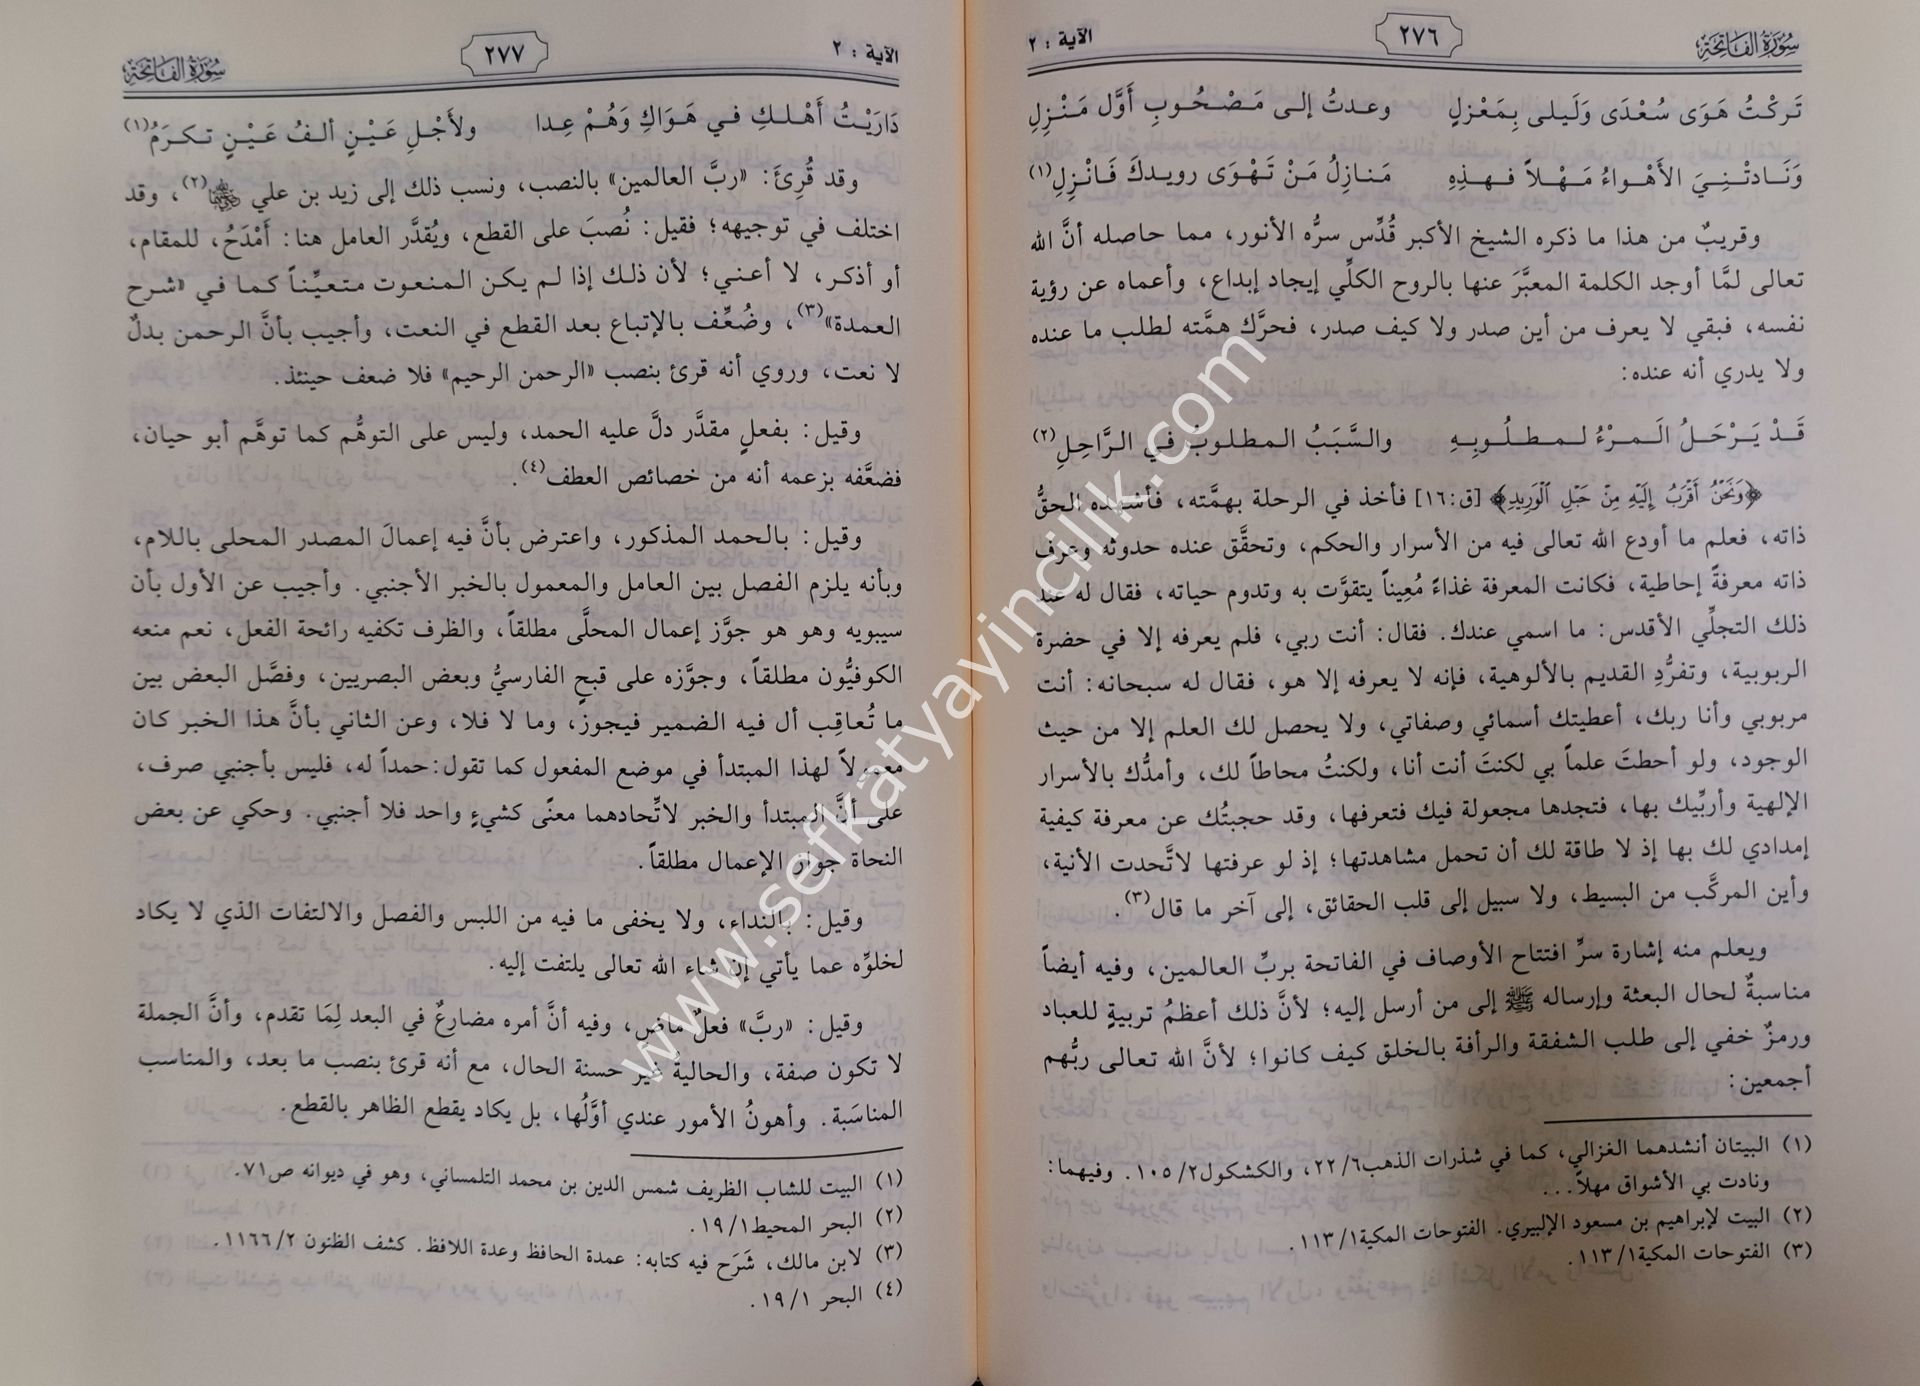 سورة الفاتحة
٢٧٦
الآية : ٢
تَركْتُ هَوَى سُعْدَى وَلَيلى بِمَعْزلٍ وعدتُ إلى مَصْحُوبِ أوَّل مَنْزِلِ
وَنَادتْنِيَ الأهْواءُ مَهْلاً فهذِهِ مَنازِلُ مَنْ تَهْوَى رويدكَ فَانْزِلِ(١)
وقريبٌ من هذا ما ذكره الشيخ الأكبر قُدِّس سرُّه الأنور، مما حاصله أنَّ الله
تعالى لمَّا أوجد الكلمة المعبَّرَ عنها بالروح الكلِّي إيجاد إبداع، وأعماه عن رؤية
نفسه، فبقي لا يعرف من أين صدر ولا كيف صدر، فحرَّك همَّته لطلب ما عنده
ولا يدري أنه عنده:
قَدْ يَرْحَلُ المَرْءُ لمطلُوبِهِ والسَّبَبُ المطلوبُ في الرَّاحِلِ(٢)
﴿وَنَحْنُ أَقْرَبُ إِلَيْهِ مِنْ حَبْلِ الْوَرِيدِ﴾ [ق:١٦] فأخذ في الرحلة بهمَّته، فأشهده الحقُّ
ذاته، فعلم ما أودع الله تعالى فيه من الأسرار والحكم، وتحقَّق عنده حدوثه وعرف
ذاته معرفةً إحاطية، فكانت المعرفة غذاءً مُعِيناً يتقوَّت به وتدوم حياته، فقال له عند
ذلك التجلِّي الأقدس: ما اسمي عندك. فقال: أنت ربي، فلم يعرفه إلا في حضرة
الربوبية، وتفرُّدِ القديم بالألوهية، فإنه لا يعرفه إلا هو، فقال له سبحانه: أنت
مربوبي وأنا ربك، أعطيتك أسمائي وصفاتي، ولا يحصل لك العلم إلا من حيث
الوجود، ولو أحطتَ علماً بي لكنتَ أنت أنا، ولكنتُ محاطاً لك، وأمدُّك بالأسرار
الإلهية وأربِّيك بها، فتجدها مجعولة فيك فتعرفها، وقد حجبتُك عن معرفة كيفية
إمدادي لك بها إذ لا طاقة لك أن تحمل مشاهدتها؛ إذ لو عرفتها لاتَّحدت الأنية،
وأين المركَّب من البسيط، ولا سبيل إلى قلب الحقائق، إلى آخر ما قال(٣).
ويعلم منه إشارة سرِّ افتتاح الأوصاف في الفاتحة بربِّ العالمين، وفيه أيضاً
مناسبةٌ لحال البعثة وإرساله ﷺ إلى من أرسل إليه؛ لأنَّ ذلك أعظمُ تربيةٍ للعباد
ورمزٌ خفي إلى طلب الشفقة والرأفة بالخلق كيف كانوا؛ لأنَّ الله تعالى ربُّهم
أجمعين:
(١) البيتان أنشدهما الغزالي، كما في شذرات الذهب٦/ ٢٢، والكشكول٢/ ١٠٥. وفيهما:
ونادت بي الأشواق مهلاً...
(٢) البيت لإبراهيم بن مسعود الإلبيري. الفتوحات المكية١/ ١١٣.
(٣) الفتوحات المكية١/ ١١٣.
سورة الفاتحة
٢٧٧
الآية : ٢
دَارَيْتُ أَهْلكِ في هَوَاكِ وَهُمْ عِدا ولأجْلِ عَيْنٍ ألفُ عَيْنٍ تكرَمُ(١)
وقد قُرِئَ: «ربَّ العالمين» بالنصب، ونسب ذلك إلى زيد بن علي (٢)، وقد
اختلف في توجيهه؛ فقيل: نُصبَ على القطع، ويُقدَّر العامل هنا: أمْدَحُ، للمقام،
أو أذكر، لا أعني؛ لأن ذلك إذا لم يكن المنعوت متعيِّناً كما في «شرح
العمدة»(٣)، وضُعِّف بالإتباع بعد القطع في النعت، وأجيب بأنَّ الرحمن بدلٌ
لا نعت، وروي أنه قرئ بنصب «الرحمن الرحيم» فلا ضعف حينئذ.
وقيل: بفعلٍ مقدَّر دلَّ عليه الحمد، وليس على التوهُّم كما توهَّم أبو حيان،
فضعَّفه بزعمه أنه من خصائص العطف(٤).
وقيل: بالحمد المذكور، واعترض بأنَّ فيه إعمالَ المصدر المحلى باللام،
وبأنه يلزم الفصل بين العامل والمعمول بالخبر الأجنبي. وأجيب عن الأول بأن
سيبويه وهو هو جوَّز إعمال المحلَّى مطلقاً، والظرف تكفيه رائحة الفعل، نعم منعه
الكوفيُّون مطلقاً، وجوَّزه على قبحٍ الفارسيُّ وبعض البصريين، وفصَّل البعض بين
ما تُعاقِب أل فيه الضمير فيجوز، وما لا فلا، وعن الثاني بأنَّ هذا الخبر كان
معمولاً لهذا المبتدأ في موضع المفعول كما تقول:حمداً له، فليس بأجنبي صرف،
على أنَّ المبتدأ والخبر لاتِّحادهما معنًى كشيءٍ واحد فلا أجنبي. وحكي عن بعض
النحاة جواز الإعمال مطلقاً.
وقيل: بالنداء، ولا يخفى ما فيه من اللبس والفصل والالتفات الذي لا يكاد
لخلوِّه عما يأتي إن شاء الله تعالى يلتفت إليه.
وقيل: «ربَّ» فعلٌ ماضٍ، وفيه أنَّ أمره مضارعٌ في البعد لِمَا تقدم، وأنَّ الجملة
لا تكون صفة، والحاليةُ غير حسنة الحال، مع أنه قرئ بنصب ما بعد، والمناسب
المناسَبة. وأهونُ الأمور عندي أوَّلُها، بل يكاد يقطع الظاهر بالقطع.
(١) البيت للشاب الظريف شمس الدين بن محمد التلمساني، وهو في ديوانه ص٧١.
(٢) البحر المحيط١/ ١٩.
(٣) لابن مالك، شَرَح فيه كتابه: عمدة الحافظ وعدة اللافظ. كشف الظنون ٢/ ١١٦٦.
(٤) البحر ١/ ١٩.
www.sefkatyayincilik.com